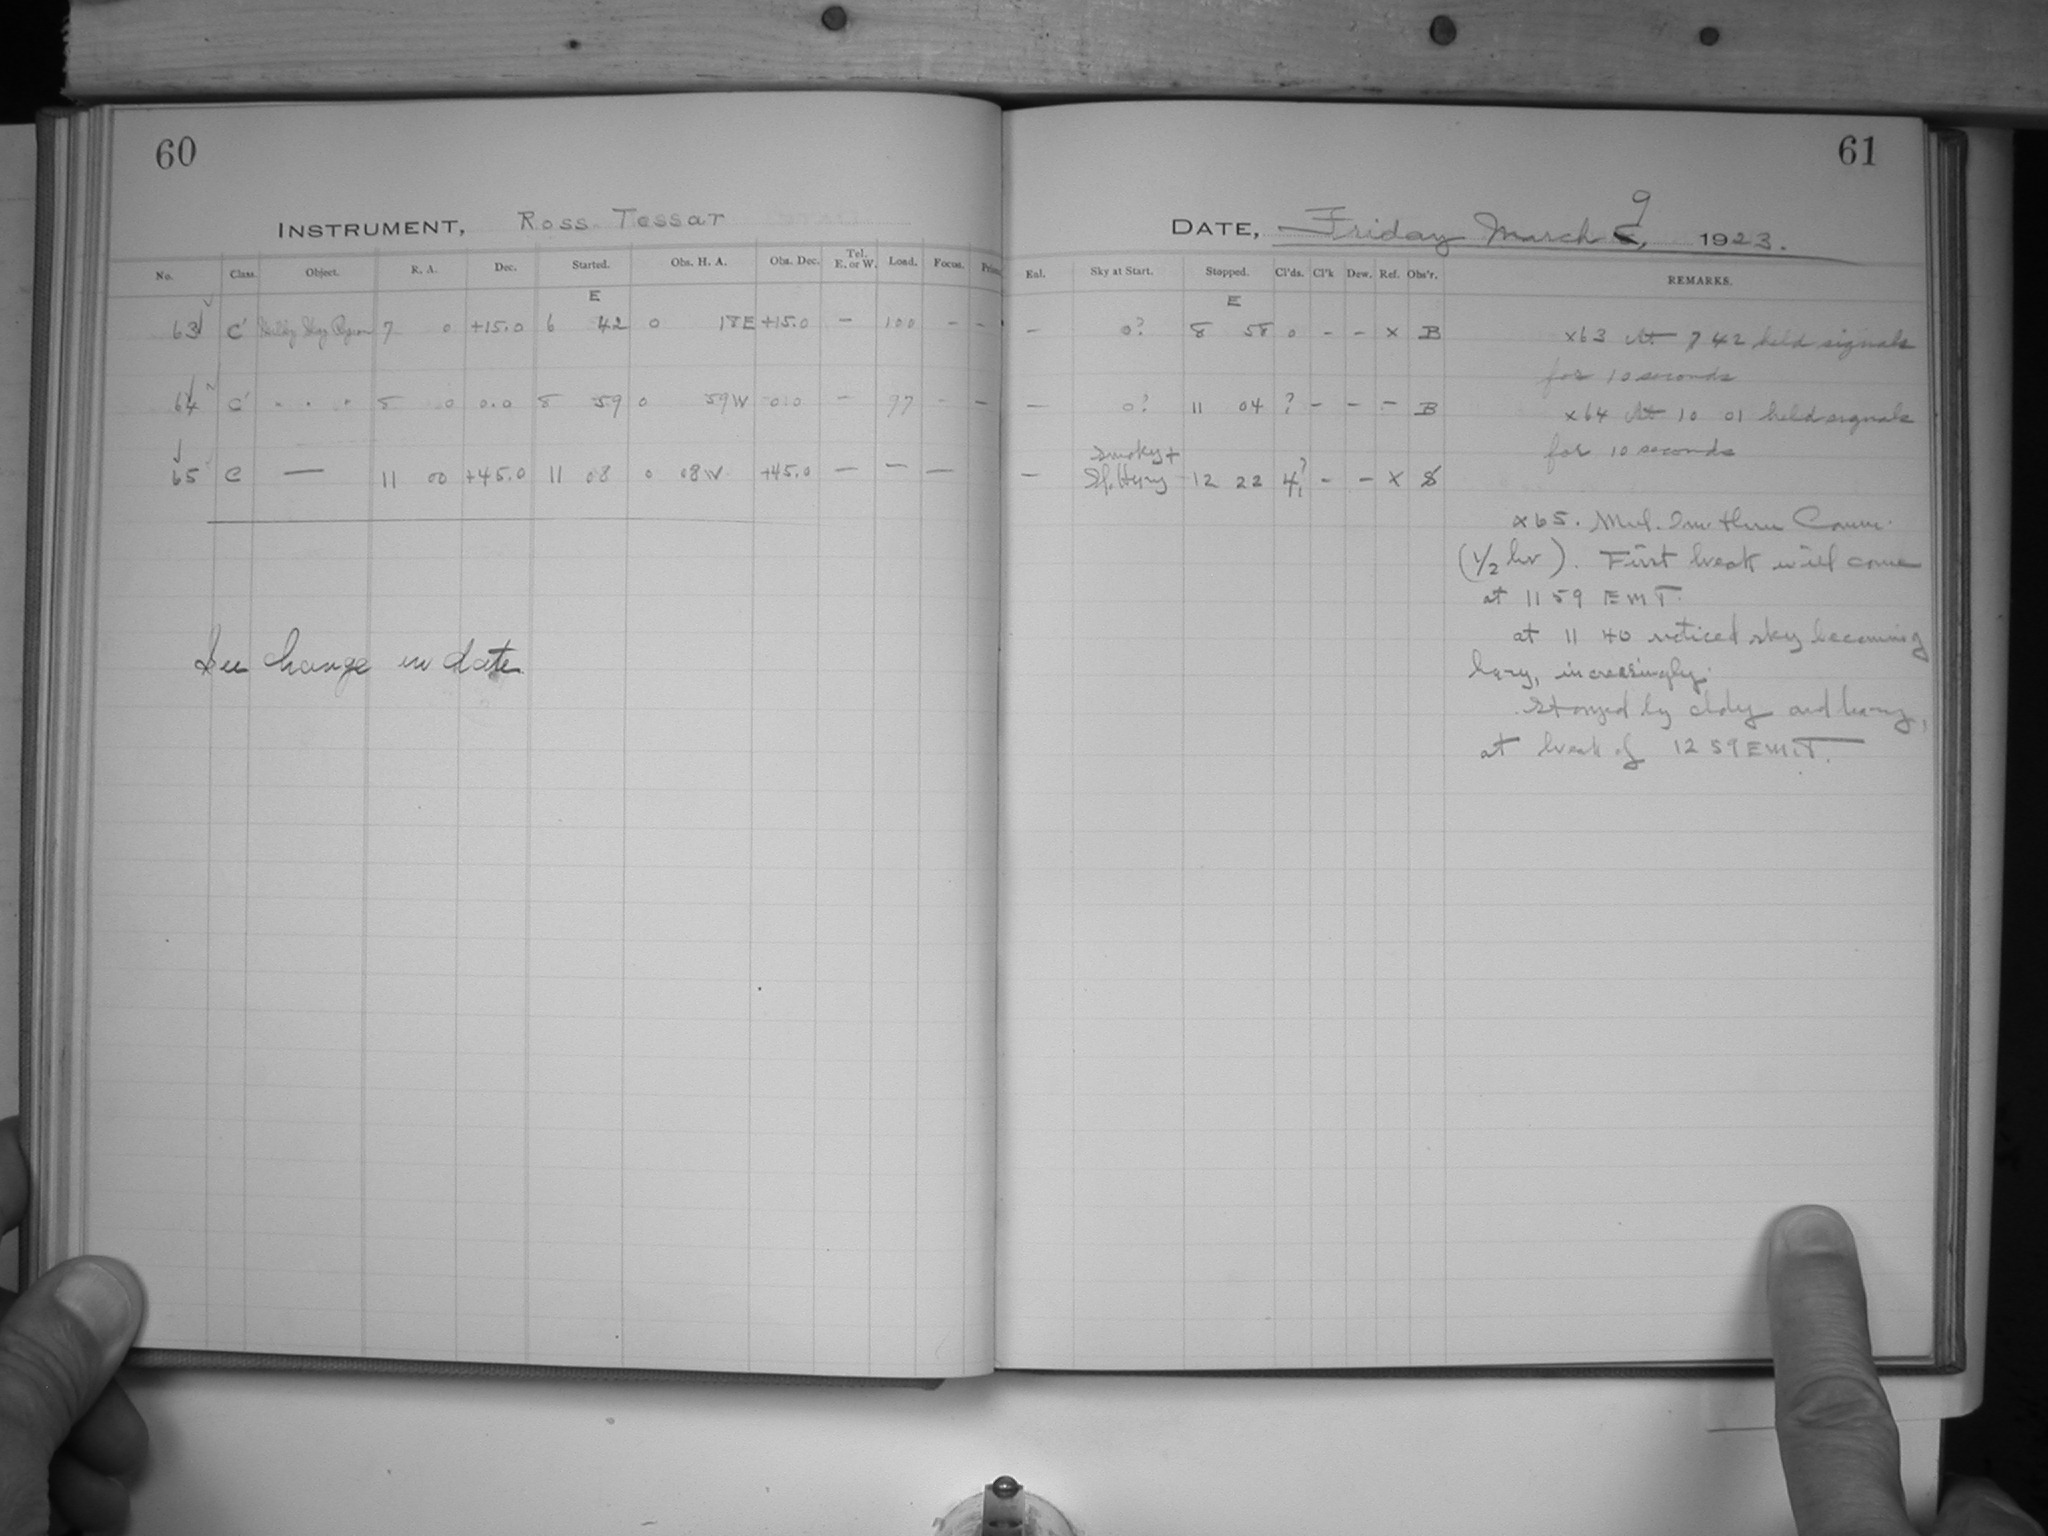 60
INSTRUMENT, Ross Tessar
No. Class. Object. R. A. Dec. Started. Obs. H. A. Obs. Dec. Tel. E. or W. Load. Focus.
E
63 C' 7 0 +15.0 6 42 0 18E +15.0 – 100 – –
64 C' " " " 8 0 0.0 8 59 0 59W 0.0 – 97 – –
65 C — 11 00 +45.0 11 08 0 08W +45.0 – – –
See change in date
61
DATE, Friday March 9, 1923.
Sky at Start. Stopped. Cl'ds. Cl'k Dew. Ref. Obs'r. REMARKS.
E
– 0? 8 58 0 – – x B x63 At 7 42 held signals
for 10 seconds
– 0? 11 04 ? – – – B x64 At 10 01 held signals
for 10 seconds
Smoky +
– Hazy 12 22 4? – – x S
x65.
(1/2 hr). First break will come
at 11 59 EMT.
at 11 40 noticed sky becoming
hazy, increasingly.
Stopped by cldy and hazy,
at break of 12 59 EM.T.